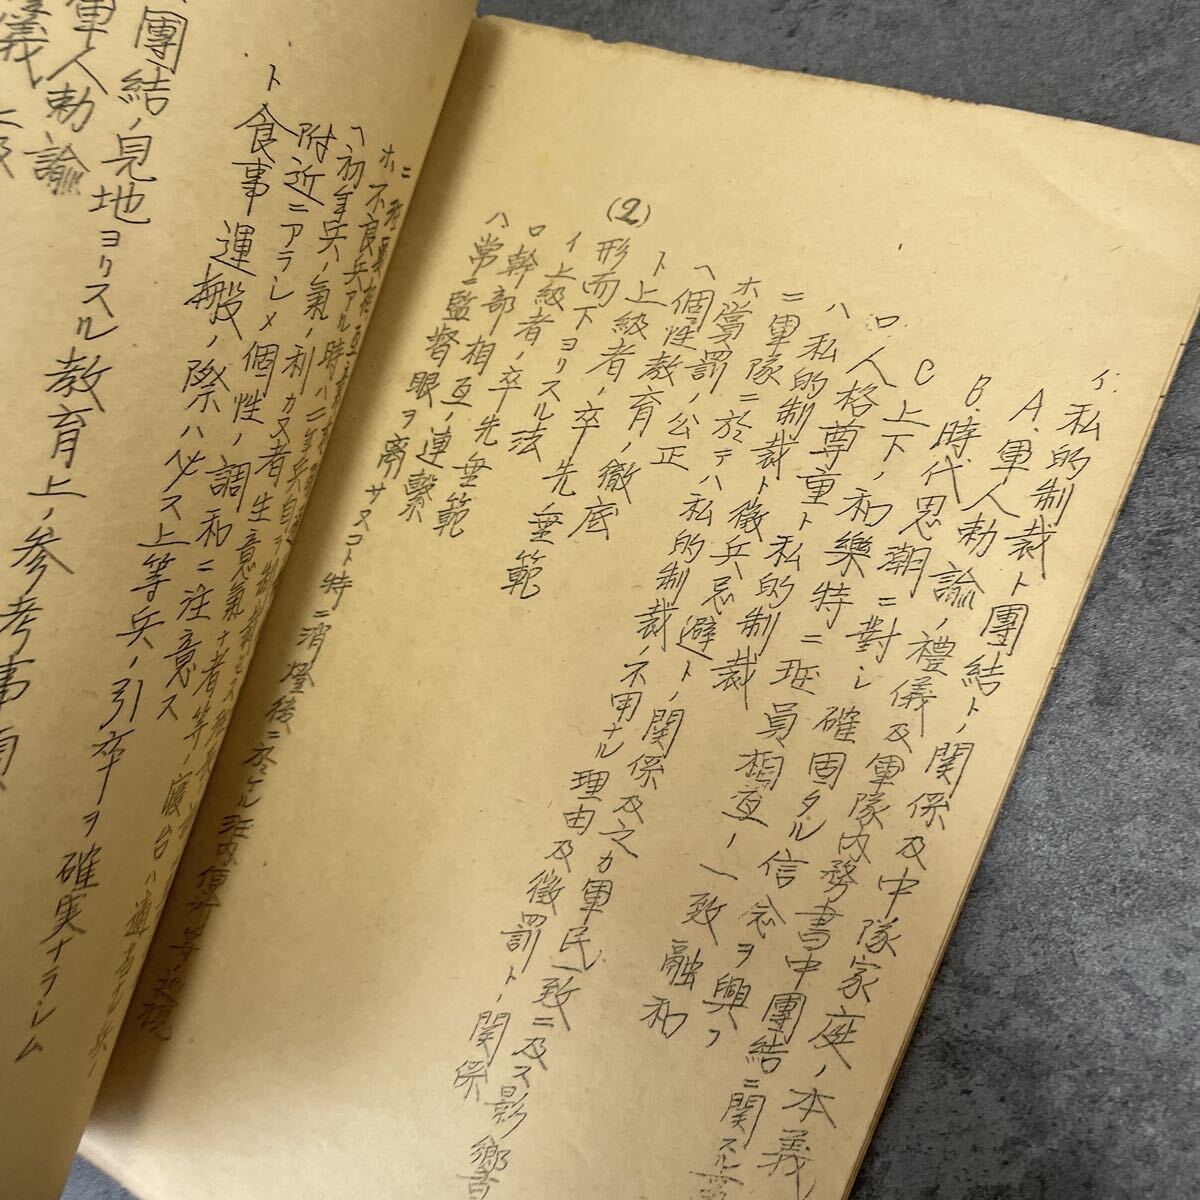 イ.私的制裁ト團結トノ関係及中隊家庭ノ本義
A.軍人勅諭ノ禮儀及軍隊内務書中團結ニ関スル
B.時代思潮ニ對シ確固タル信念ヲ興フ
C上下ノ和樂特ニ班員相互ノ一致融和
ロ.人格尊重ト私的制裁
ハ私的制裁ト徴兵忌避トノ関係及之カ軍民一致ニ及ス影響
ニ軍隊ニ於テハ私的制裁ノ不用ナル理由及徴罰トノ関係
ホ賞罰ノ公正
ヘ個性教育ノ徹底
ト上級者ノ卒先垂範
(2)形而下ヨリスル法
イ上級者ノ卒先垂範
ロ幹部相互ノ連繋
ハ常ニ監督眼ヲ離サヌコト特ニ消燈後ニ於ケル
ホ不良兵アル時ハ二年兵
ヘ初年兵ノ氣ノ利カヌ者生意氣ナ者等ノ寝台ハ適
附近ニアラシメ個性ノ調和ニ注意ス
ト食事運搬ノ際ハ必ス上等兵ノ引卒ヲ確実ナラシム
團結ノ見地ヨリスル教育上ノ参考事項
軍人勅諭